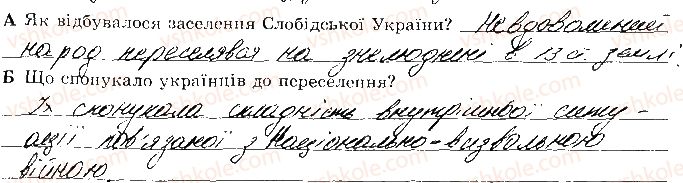 А Як відбувалося заселення Слобідської України? Невдоволений
народ переселявся на знелюднені в 13 ст. землі.
Б Що спонукало українців до переселення?
Їх спонукала складність внутрішньої ситу-
ації пов'язаної з Національно-визвольною
війною